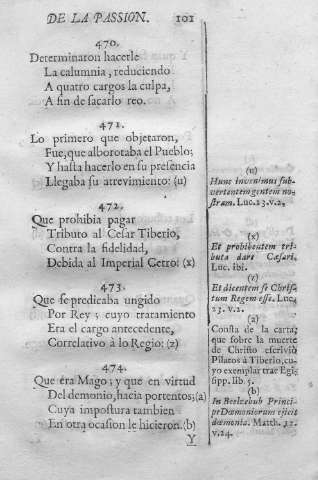 DE LA PASSION. 101
470.
Determinaron hacerle
La calumnia, reduciendo
A quatro cargos la culpa,
A fin de sacarlo reo.
471.
Lo primero que objetaron,
Fue, que alborotaba el Pueblo;
Y hasta hacerlo en su presencia
Llegaba su atrevimiento: (u)
472.
Que prohibia pagar
Tributo al Cesar Tiberio,
Contra la fidelidad,
Debida al Imperial Cetro: (x)
473.
Que se predicaba ungido
Por Rey; cuyo tratamiento
Era el cargo antecedente,
Correlativo à lo Regio: (z)
474.
Que éra Mago; y que en virtud
Del demonio, hacia portentos; (a)
Cuya impostura tambien
En otra ocasion le hicieron. (b)
Y
(u)
Hunc invenimus sub-
vertentem gentem no-
stram. Luc. 23. v. 2.
(x)
Et prohibentem tri-
buta dare Cæsari.
Luc. ibi.
Et dicentem se Chris-
tum Regem esse. Luc.
23. v. 2.
(a)
Consta de la carta,
que sobre la muerte
de Christo escriviò
Pilatos à Tiberio, cu-
yo exemplar trae Egis-
spp. lib. 5.
(b)
In Beelzebub Princi-
pe Dæmoniorum ejicit
dæmonia. Matth. 12.
v. 24.